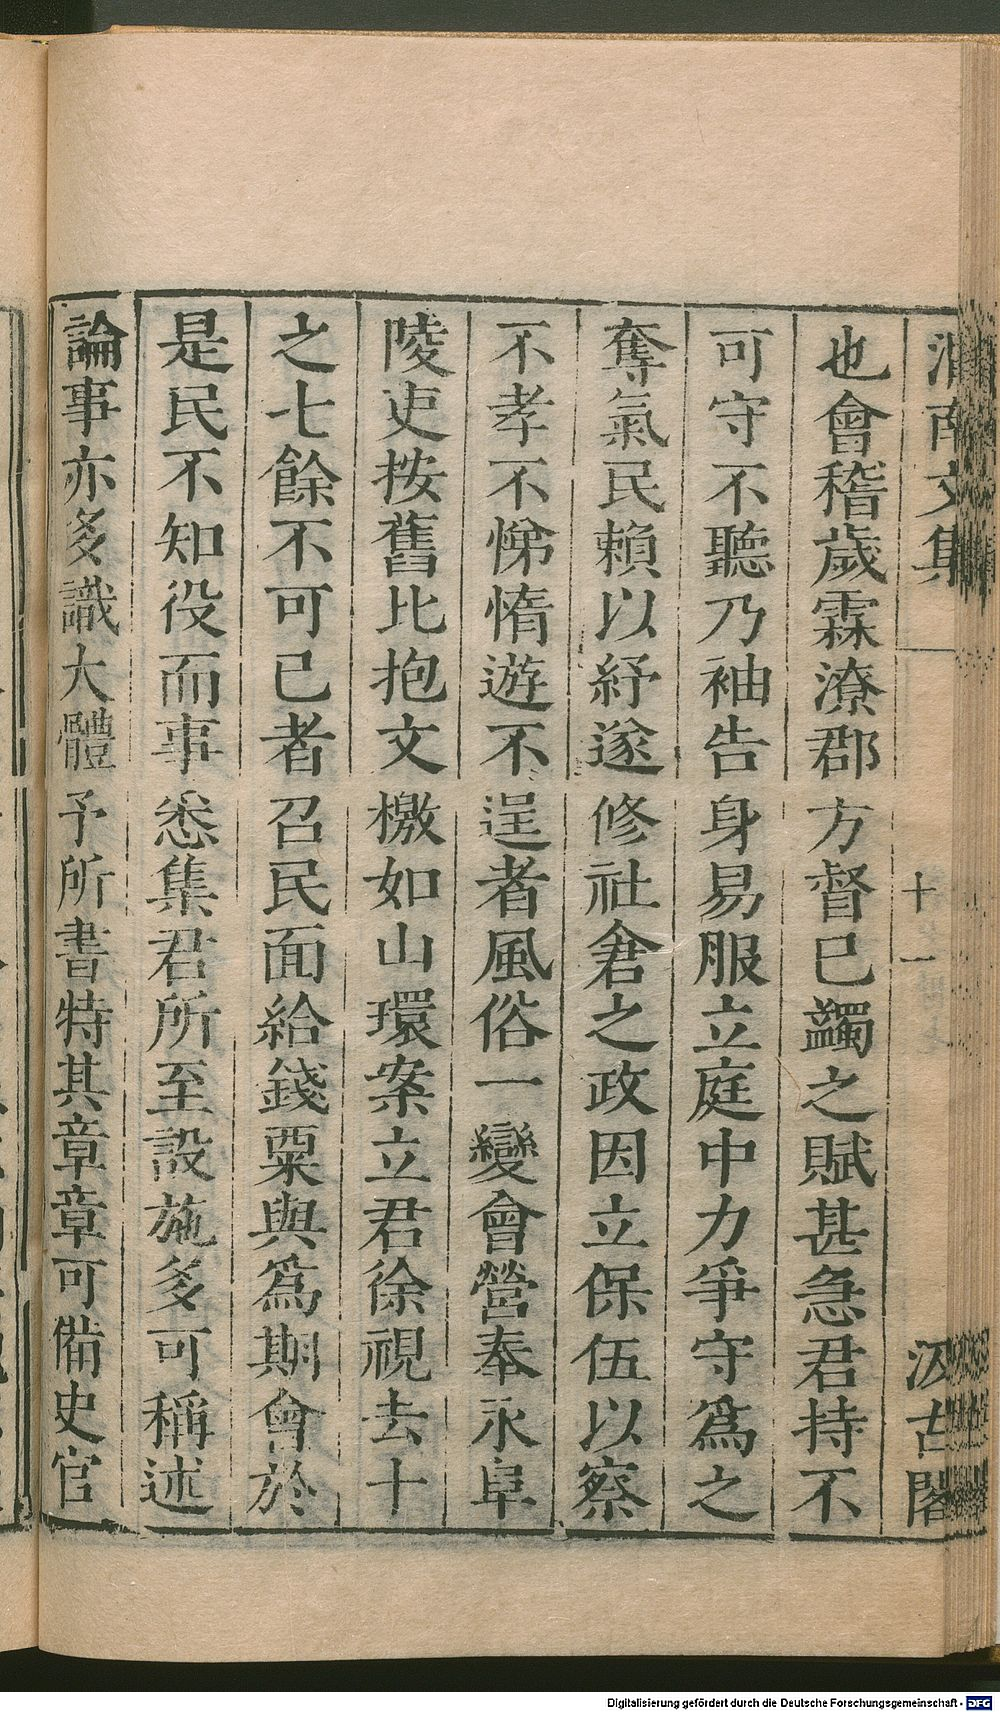 渭南文集 十一 汲古閣
也會稽歲霖潦郡方督已蠲之賦甚急君持不
可守不聽乃袖告身易服立庭中力爭守爲之
奪氣民賴以紓遂修社倉之政因立保伍以察
不孝不悌惰遊不逞者風俗一變會營奉永阜
陵吏按舊比抱文檄如山環案立君徐視去十
之七餘不可已者召民面給錢粟與爲期會於
是民不知役而事悉集君所至設施多可稱述
論事亦多識大體予所書特其章章可備史官
Digitalisierung gefördert durch die Deutsche Forschungsgemeinschaft - DFG